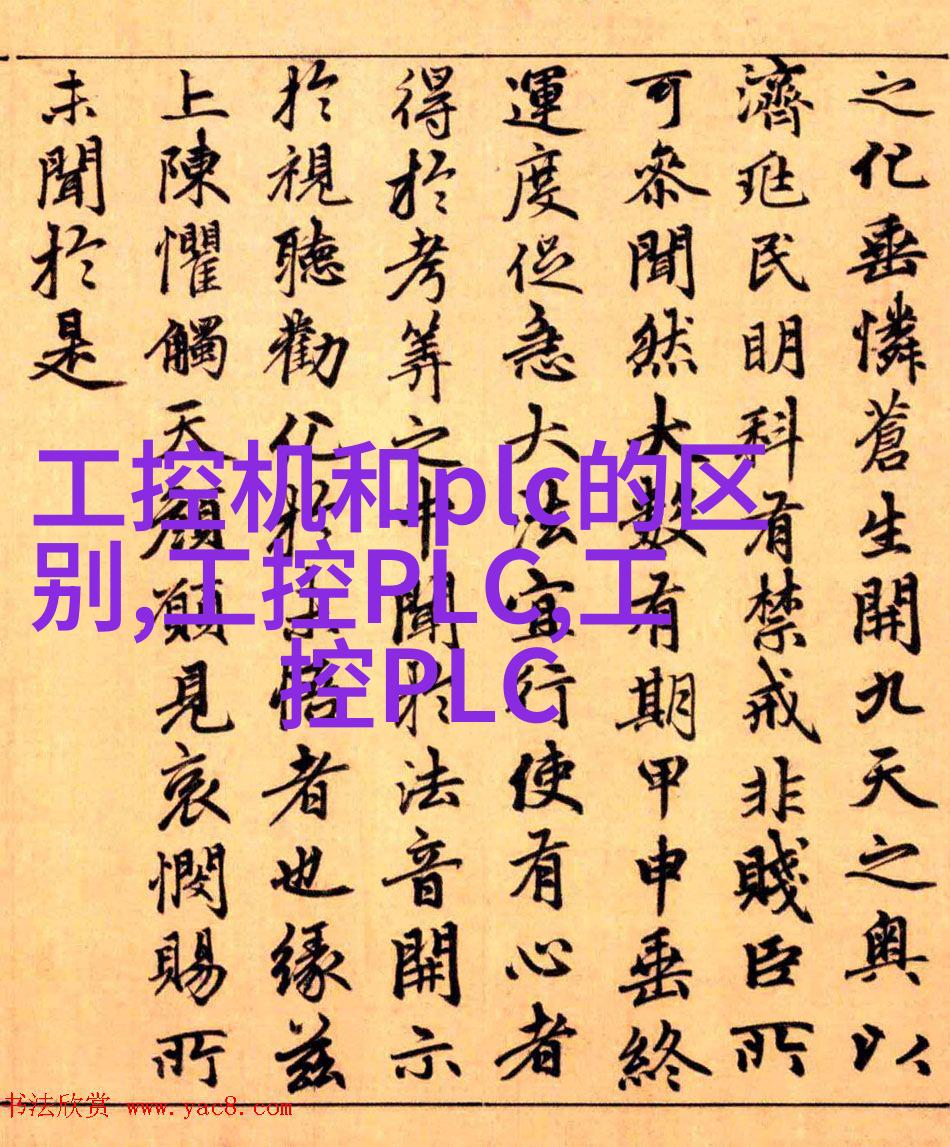 之化垂憐蒼生開九天之奥以
濟兆民明科有禁戒非賤臣所
可叅聞然大數有期甲申垂終
運度促急大法宜行使有心者
得於考筭之中聞於法音開示
於視聽勸化於未悟者也緣茲
上陳懼觸天顔願見哀憫賜所
未聞於是
工控机和plc的区
别,工控PLC,工
控PLC
书法欣赏 www.yac8.com